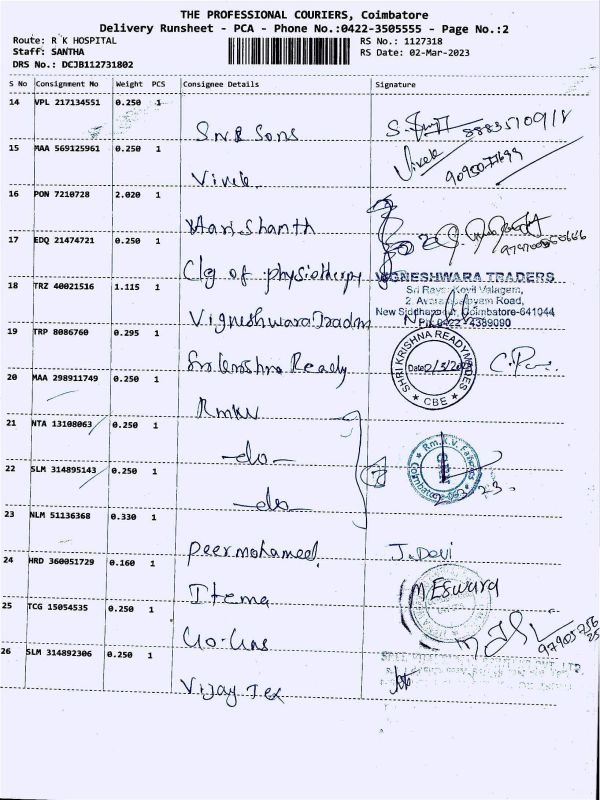 THE PROFESSIONAL COURIERS, Coimbatore
Delivery Runsheet - PCA - Phone No.:0422-3505555 - Page No.:2
Route: R K HOSPITAL
RS No.: 1127318
Staff: SANTHA
RS Date: 02-Mar-2023
DRS No.: DCJB112731802
S No Consignment No Weight PCS Consignee Details Signature
14 VPL 217134551 0.250 1
SNR Sons
15 MAA 569125961 0.250 1
Vivek
Vivek
16 PON 7210728 2.020 1
Hari Shanth
17 EDQ 21474721 0.250 1
Clg of physiotherapy
18 TRZ 40021516 1.115 1
VIGNESHWARA TRADERS
New Siddhapudur, Coimbatore-641044
Vigneshwara Tradrs
19 TRP 8086760 0.295 1
SHRI KRISHNA READYMADES
Date 2/3/2023
CBE
Sri Krishna Ready
20 MAA 298911749 0.250 1
Rmkv
21 NTA 13108063 0.250 1
-do-
Rm.K.V. Fabrics
Coimbatore
22 SLM 314895143 0.250 1
2.3.23.
-do-
23 NLM 51136368 0.330 1
Peer mohamed
J. Devi
24 HRD 360051729 0.160 1
M Eswara
25 TCG 15054535 0.250 1
26 SLM 314892306 0.250 1
Vijay Tex